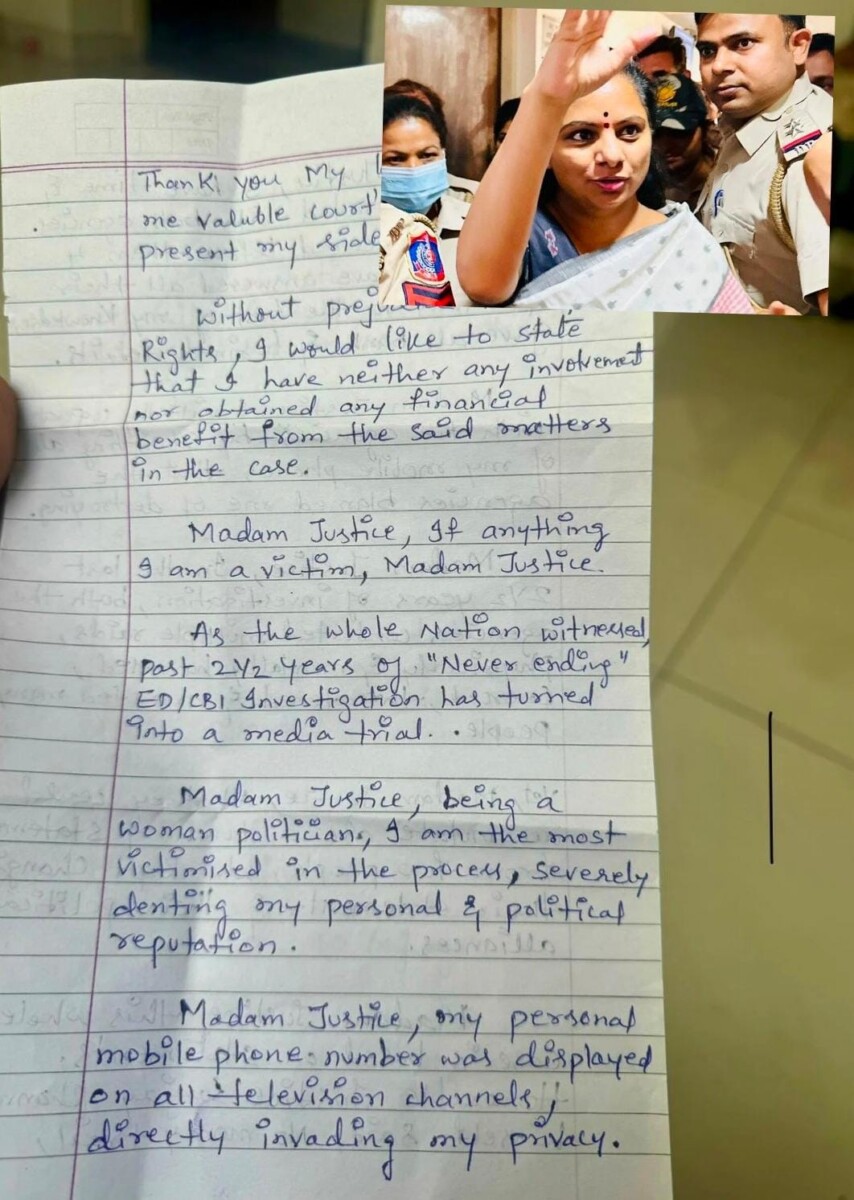 Thank you My
me valuble court
present my side
Without preju
Rights, I would like to state
that I have neither any involvement
nor obtained any financial
benefit from the said matters
in the case.
Madam Justice, If anything
I am a victim, Madam Justice.
As the whole Nation witnessed,
past 2 1/2 years of "Never ending"
ED/CBI Investigation has turned
into a media trial..
Madam Justice, being a
woman politician, I am the most
victimised in the process, severely
denting my personal & political
reputation.
Madam Justice, my personal
mobile phone number was displayed
on all television channels,
directly invading my privacy.